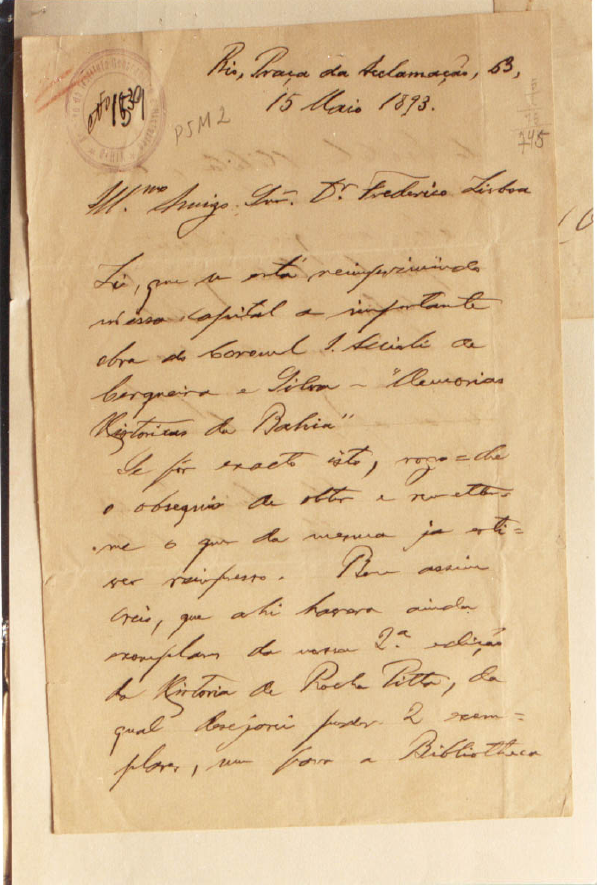 Rio, Praça da Acclamação, 53,
15 Maio 1893.
1539
PSM2
745
Ill.mo Amigo Snr. Dr. Frederico Lisboa
Li, que se está reimprimindo
nessa Capital a importante
obra do Coronel I. Accioli de
Cerqueira e Silva – "Memorias
Historicas da Bahia"
Se fôr exacto isto, rogo=lhe
o obsequio de obter e remetter-
me o que da mesma já esti=
ver reimpresso. Bem assim
creio, que ahi haverá ainda
exemplares da nossa 2.ª edição
da Historia de Rocha Pitta, da
qual desejarei 2 exem=
plares, um para a Bibliotheca